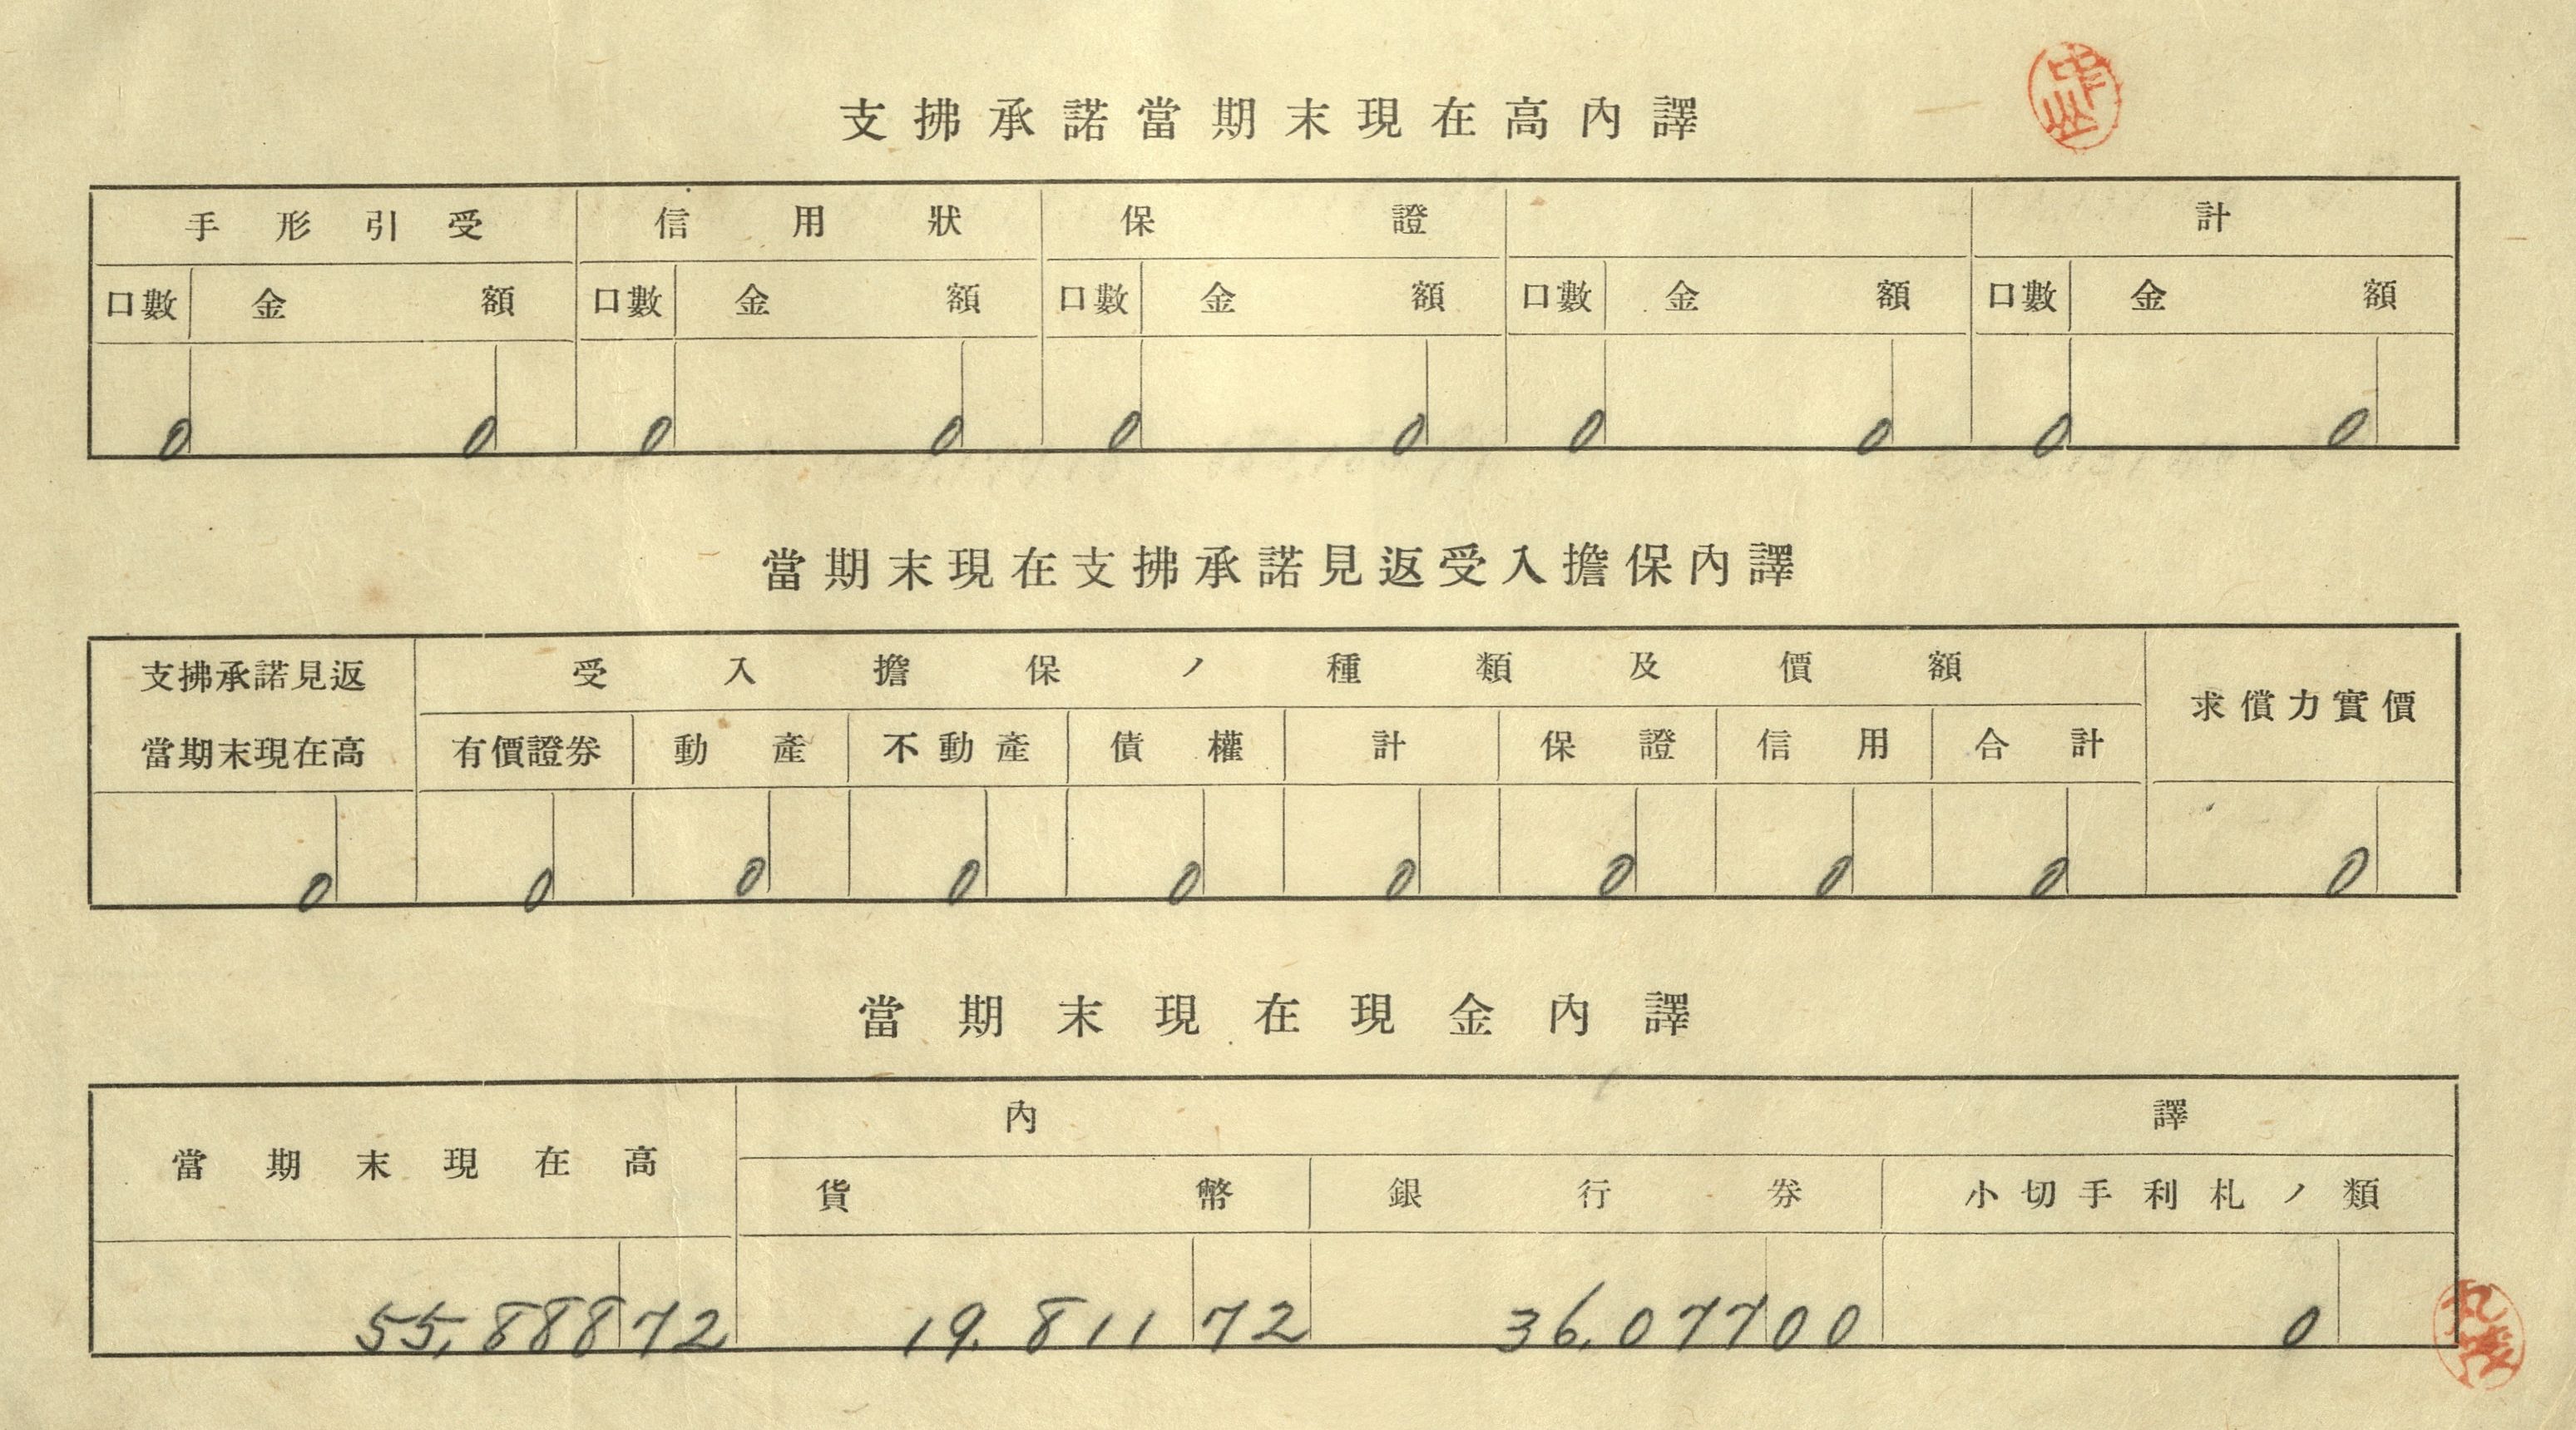 支拂承諾當期末現在高內譯
手形引受 信用狀 保證 計
口數 金額 口數 金額 口數 金額 口數 金額 口數 金額
0 0 0 0 0 0 0 0 0 0
當期末現在支拂承諾見返受入擔保內譯
支拂承諾見返當期末現在高 受入擔保ノ種類及價額 求償力實價
有價證券 動產 不動產 債權 計 保證 信用 合計
0 0 0 0 0 0 0 0 0 0
當期末現在現金內譯
當期末現在高 內譯
貨幣 銀行券 小切手利札ノ類
55,888 72 19,811 72 36,077 00 0